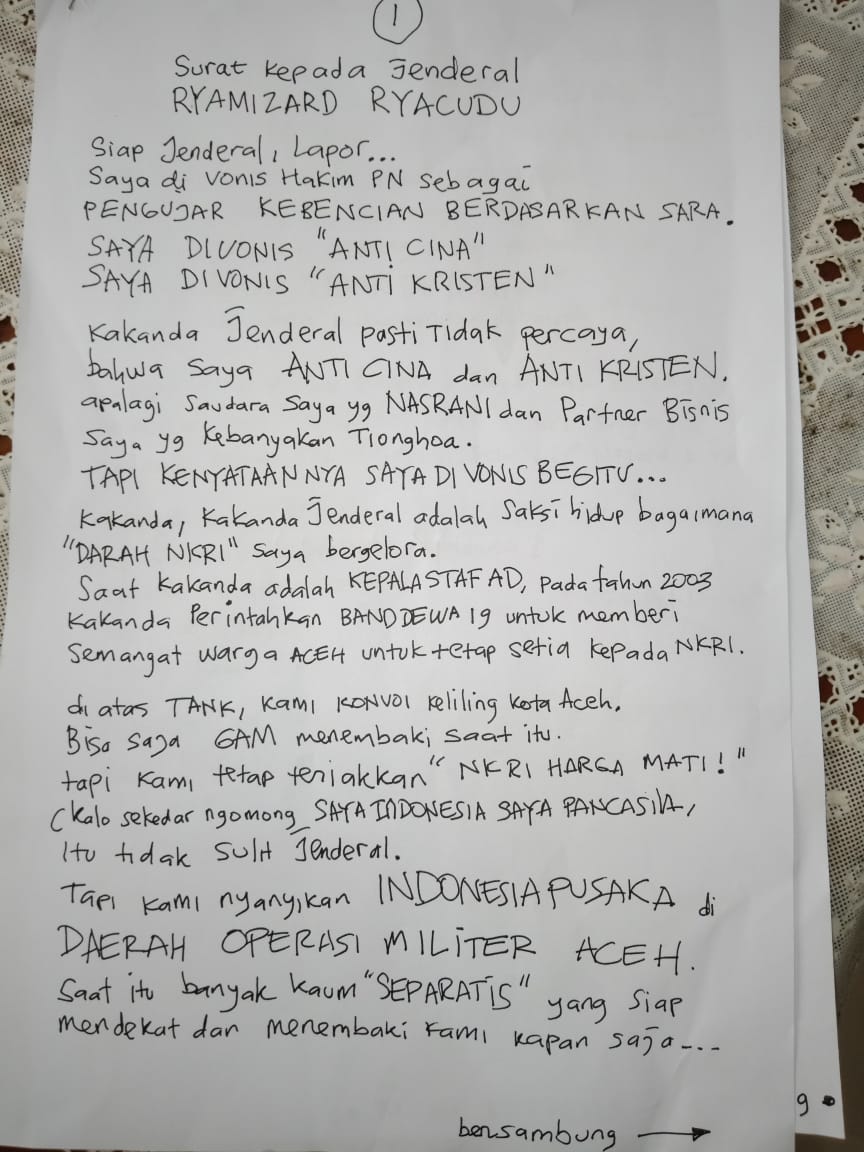 1
Surat kepada Jenderal
RYAMIZARD RYACUDU
Siap Jenderal, Lapor...
Saya di vonis Hakim PN sebagai
PENGUJAR KEBENCIAN BERDASARKAN SARA.
SAYA DIVONIS "ANTI CINA"
SAYA DIVONIS "ANTI KRISTEN"
Kakanda Jenderal pasti Tidak percaya,
bahwa saya ANTI CINA dan ANTI KRISTEN.
apalagi Saudara Saya yg NASRANI dan Partner Bisnis
Saya yg Kebanyakan Tionghoa.
TAPI KENYATAANNYA SAYA DI VONIS BEGITU...
Kakanda, Kakanda Jenderal adalah Saksi hidup bagaimana
"DARAH NKRI" saya bergelora.
Saat Kakanda adalah KEPALA STAF AD, Pada tahun 2003
Kakanda Perintahkan BAND DEWA 19 untuk memberi
Semangat warga ACEH untuk tetap setia kepada NKRI.
di atas TANK, Kami KONVOI Keliling Kota Aceh.
Bisa saja GAM menembaki saat itu.
tapi Kami tetap teriakkan "NKRI HARGA MATI!"
(Kalo sekedar ngomong SAYA INDONESIA SAYA PANCASILA,
Itu tidak Sulit Jenderal.
Tapi Kami nyanyikan INDONESIA PUSAKA di
DAERAH OPERASI MILITER ACEH.
Saat itu banyak kaum "SEPARATIS" yang Siap
mendekat dan menembaki Kami kapan saja...
9
bersambung →